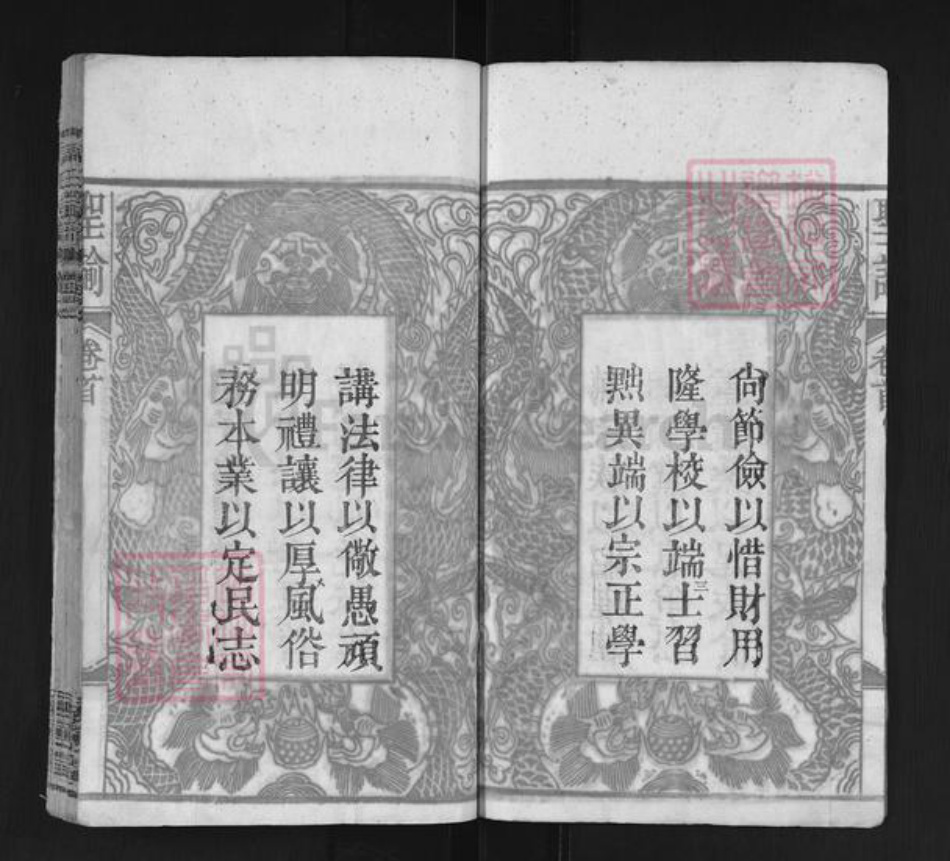 尙節儉以惜財用
隆學校以端士習
黜異端以宗正學
講法律以儆愚頑
明禮讓以厚風俗
務本業以定民志
聖諭
卷首